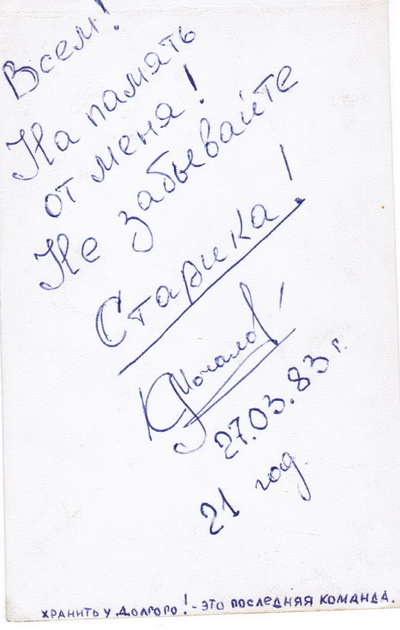 Всем!
На память
от меня!
Не забывайте
Старика!
Мочалов
27.03.83 г.
21 год.
ХРАНИТЬ У ДОЛГОГО! - ЭТО ПОСЛЕДНЯЯ КОМАНДА.